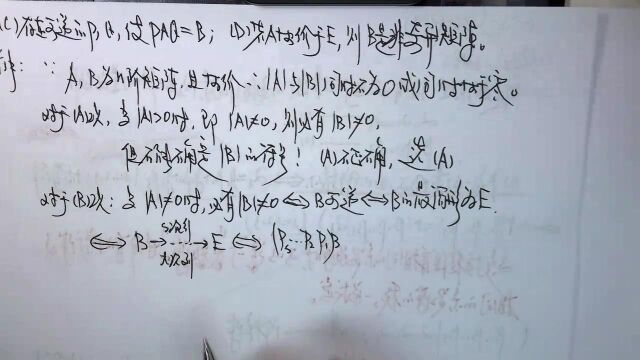 (C)存在可逆的P,Q,使PAQ=B; (D)若A等价于E,则B是非奇异矩阵。
∵ A,B为n阶矩阵,且等价∴|A|与|B|同时不为0或同时等于零。
对于(A)项,当|A|>0时,即|A|≠0,则必有|B|≠0,
但不能确定|B|的符号! (A)不正确,选(A)
对于(B)项:当|A|≠0时,必有|B|≠0⟺B可逆⟺B的最简形为E.
⟺ B→E ⟺ (Ps…P2P1)B